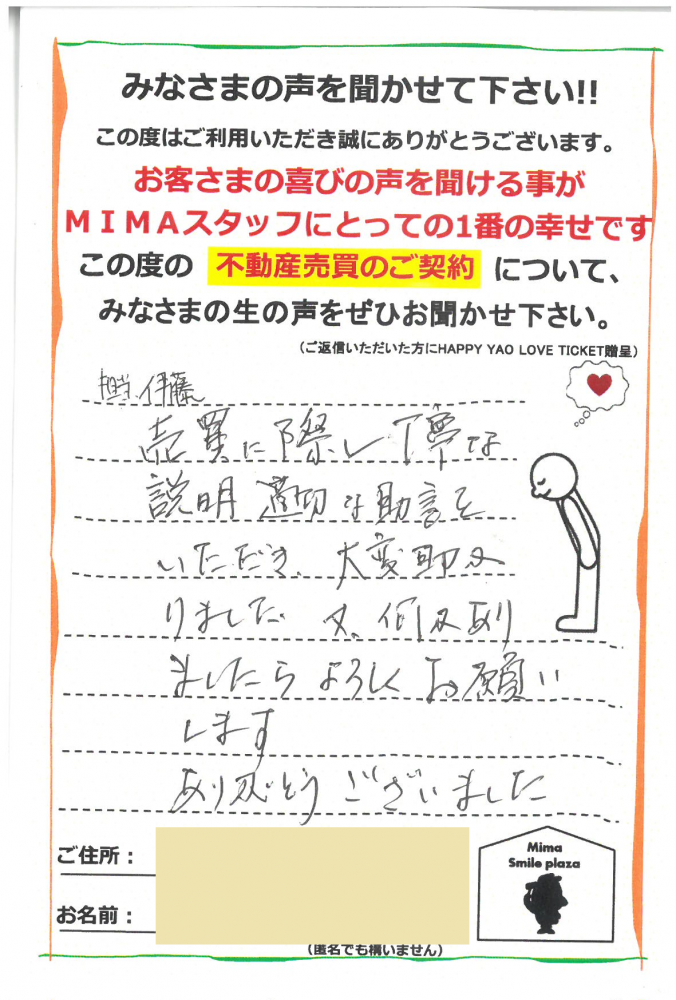 みなさまの声を聞かせて下さい!!
この度はご利用いただき誠にありがとうございます。
お客さまの喜びの声を聞ける事が
ＭＩＭＡスタッフにとっての1番の幸せです
この度の 不動産売買のご契約 について、
みなさまの生の声をぜひお聞かせ下さい。
（ご返信いただいた方にHAPPY YAO LOVE TICKET贈呈）
担当、伊藤
売買に際し丁寧な
説明 適切な助言を
いただき、大変助か
りました 又、何かあり
ましたらよろしくお願い
します
ありがどうございました
ご住所：
お名前：
（匿名でも構いません）
Mima
Smile plaza